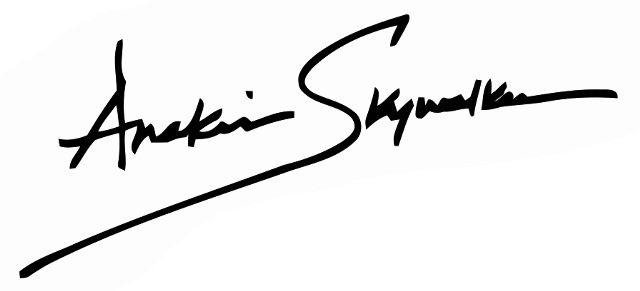 Anakin Skywalker